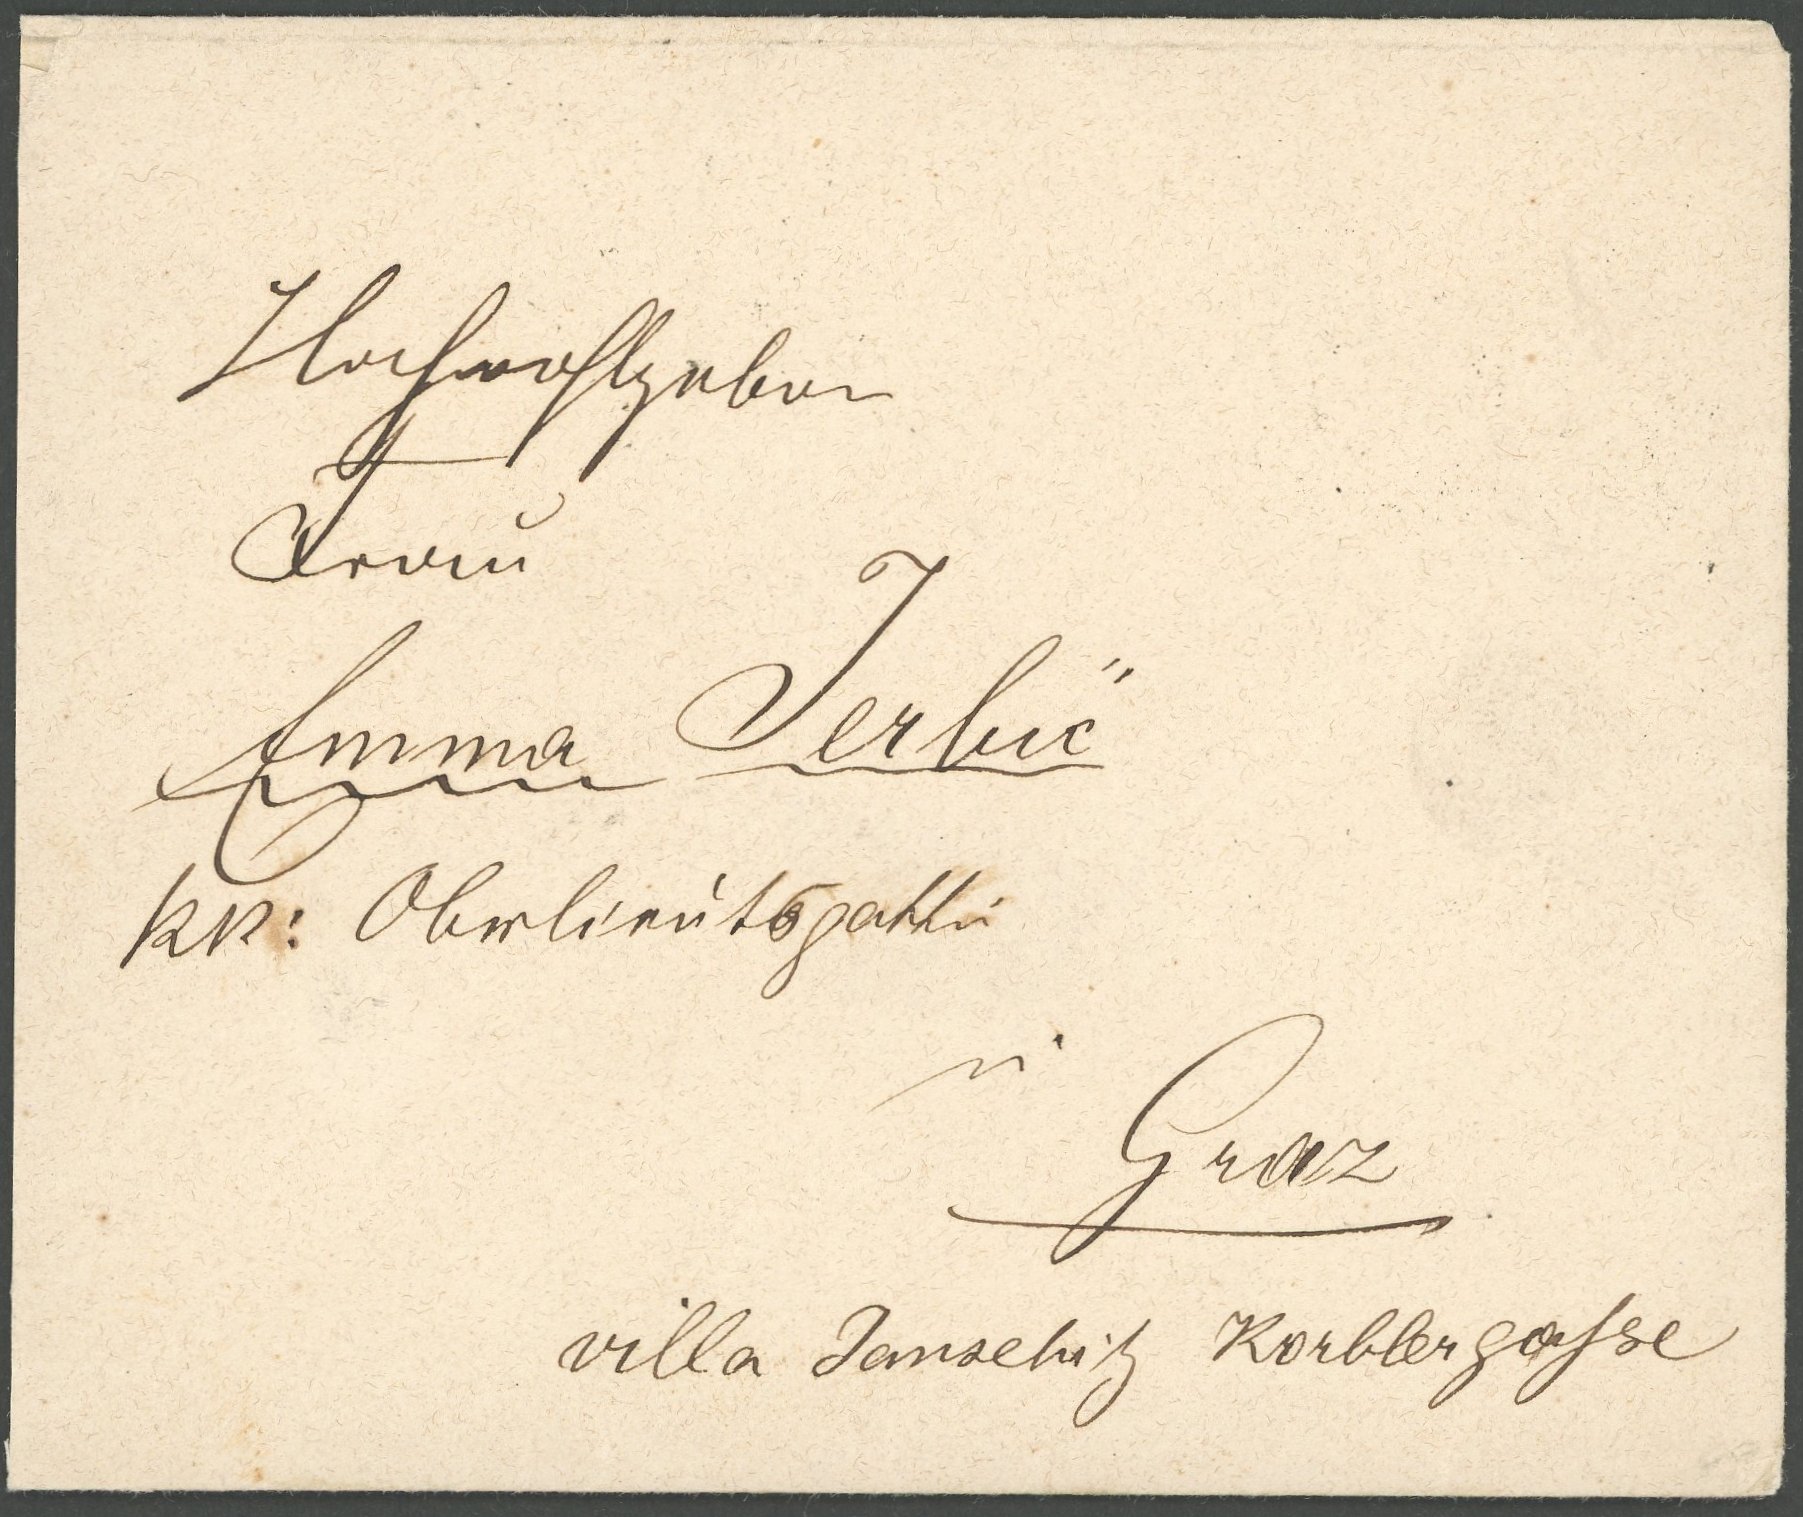 Hochwohlgeboren
Frau
Emma Jerbić
KK: Oberlieutsgattin
in
Graz
villa Janschitz Korblergasse